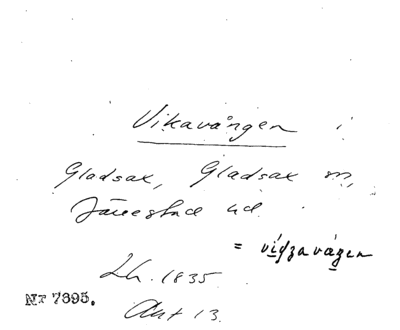 Vikavången i
Gladsax, Gladsax sn,
Järrestad hd.
= vigzavågen
Lh. 1835
Akt 13.
Nr 7895.